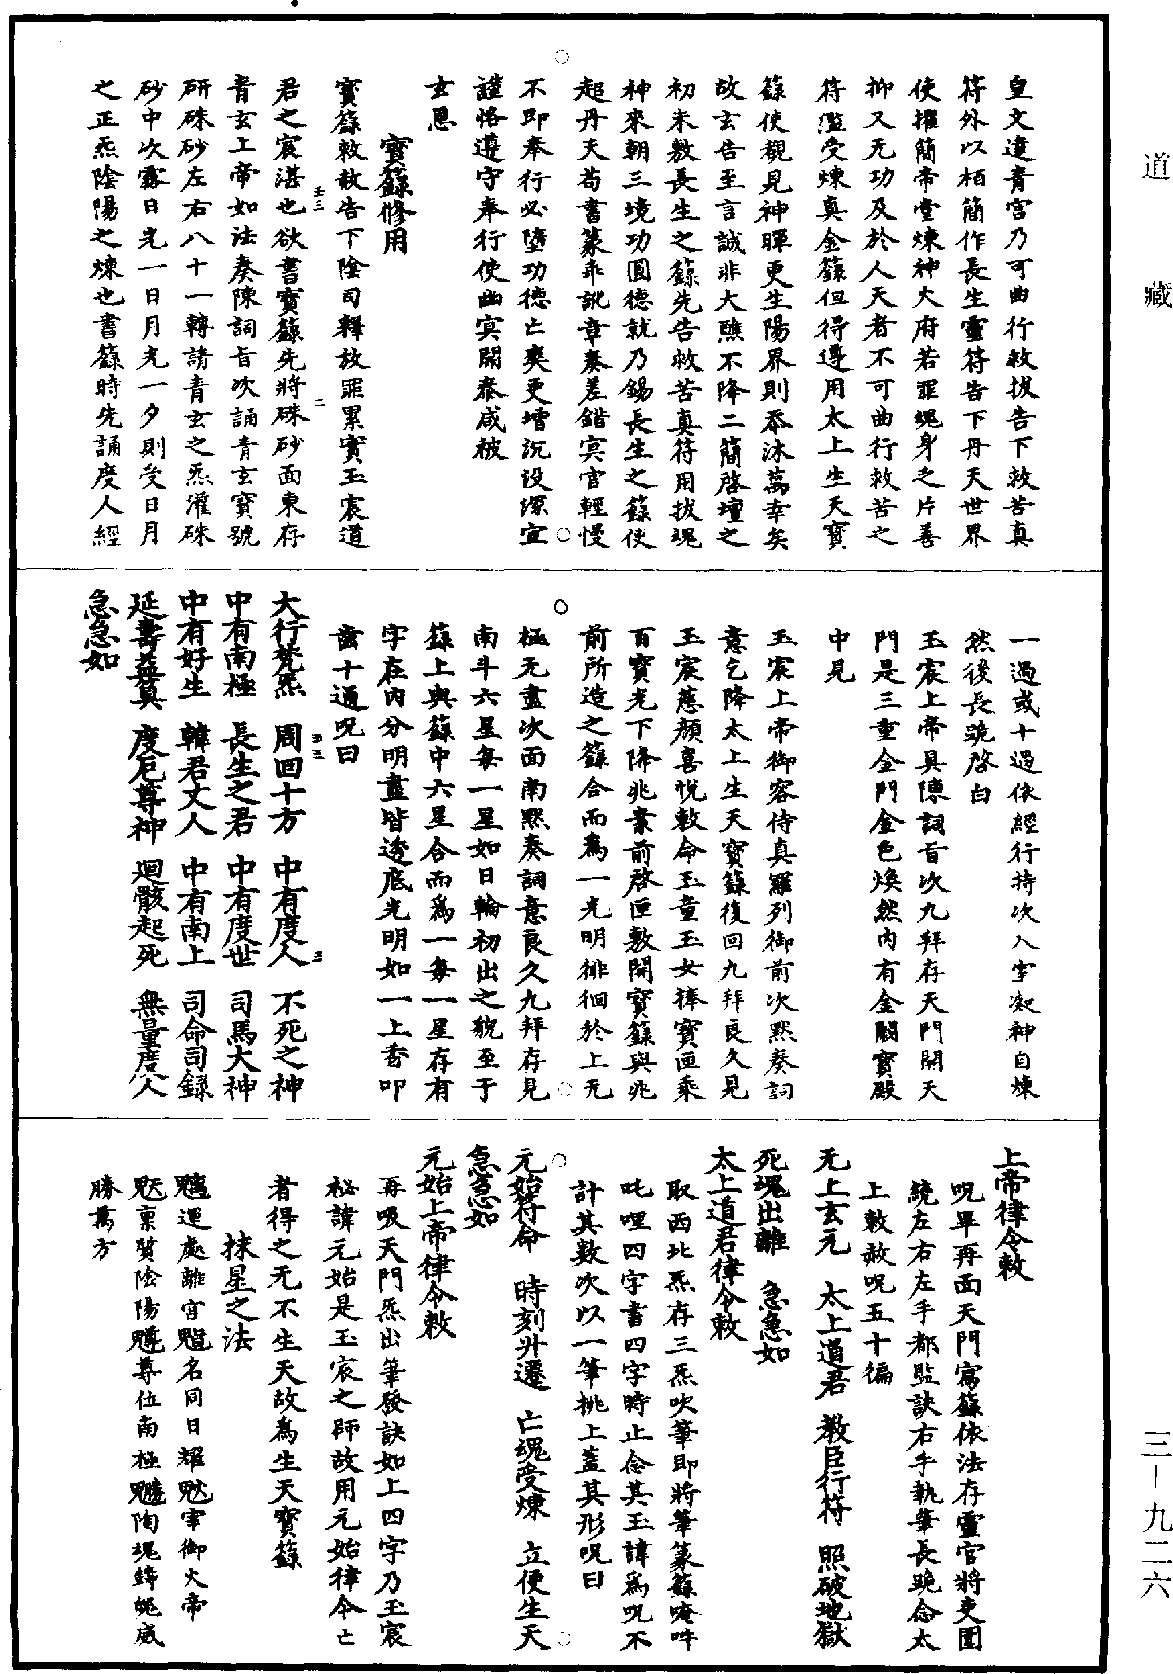 道藏
皇文達青宮乃可曲行敕拔告下救苦真
符外以栢簡作長生靈符告下丹天世界
使擢簡帝堂煉神大府若罪魂身之片善
抑又无功及於人天者不可曲行救苦之
符濫受煉真金籙但得遵用太上生天寶
籙使覩見神暉更生陽界則忝沐萬幸矣
故玄告至言誠非大醮不降二簡啓壇之
初未敷長生之籙先告救苦真符用拔魂
神來朝三境功圓德就乃錫長生之籙使
起丹天苟書篆乖訛章奏差錯冥官輕慢
不即奉行必墮功德亡爽更增沉没深宜
謹恪遵守奉行使幽冥開泰咸被
玄恩
寶籙修用
寶籙敕赦告下陰司釋放罪累實玉宸道
君之宸湛也欲書寶籙先將硃砂面東存
青玄上帝如法奏陳詞旨次誦青玄寶號
研硃砂左右八十一轉請青玄之炁灌硃
砂中次露日光一日月光一夕則受日月
之正炁陰陽之煉也書籙時先誦度人經
一過或十過依經行持次入室凝神自煉
然後長跪啓白
玉宸上帝具陳詞旨次九拜存天門開天
門是三重金門金色煥然內有金闕寶殿
中見
玉宸上帝御容侍真羅列御前次黙奏詞
意乞降太上生天寶籙復回九拜良久見
玉宸慈顏喜悅敕命玉童玉女捧寶匣乘
百寶光下降兆案前啓匣敷開寶籙與兆
前所造之籙合而爲一光明徘徊於上无
極无盡次面南黙奏詞意良久九拜存見
南斗六星每一星如日輪初出之貌至于
籙上與籙中六星合而爲一每一星存有
字在內分明畫皆透底光明如一上香叩
齒十通呪曰
大行梵炁 周回十方 中有度人 不死之神
中有南極 長生之君 中有度世 司馬大神
中有好生 韓君丈人 中有南上 司命司錄
延壽益筭 度厄尊神 迴骸起死 無量度人
急急如
上帝律令敕
呪畢再面天門寫籙依法存靈官將吏圍
繞左右左手都監訣右手執筆長跪念太
上敕赦呪五十徧
无上玄元 太上道君 教臣行符 照破地獄
死魂出離 急急如
太上道君律令敕
取西北炁存三炁吹筆即將筆篆籙唵吽
吒哩四字書四字時止念其玉諱爲呪不
計其數吹以一筆挑上蓋其形呪曰
元始符命 時刻升遷 亡魂受煉 立便生天
急急如
元始上帝律令敕
再吸天門炁出筆發訣如上四字乃玉宸
祕諱元始是玉宸之師故用元始律令亡
者得之无不生天故爲生天寶籙
抹星之法
運處離宮名同日耀宰御火帝
稟質陰陽尊位南極陶魂鑄魄威
勝萬方
三－九二六